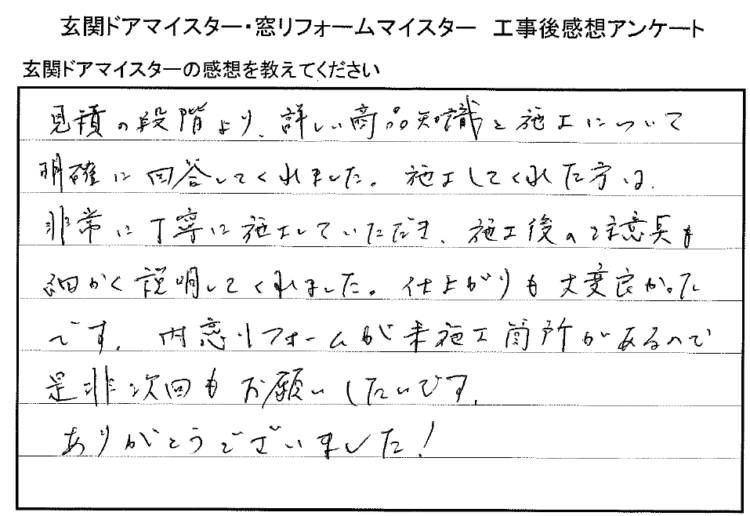 玄関ドアマイスター・窓リフォームマイスター 工事後感想アンケート
玄関ドアマイスターの感想を教えてください
見積の段階より、詳しい商品知識と施工について
明確に回答してくれました。施工してくれた方は、
非常に丁寧に施工していただき、施工後の注意点も
細かく説明してくれました。仕上がりも大変良かった
です。内窓リフォームが未施工箇所があるので
是非次回もお願いしたいです。
ありがとうございました!